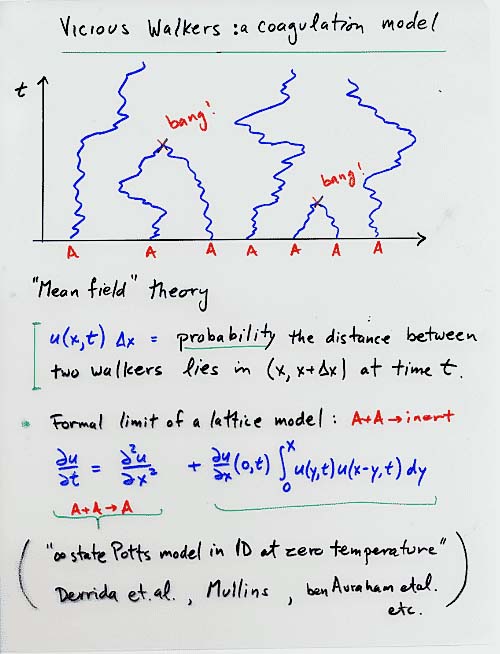 Vicious Walkers : a coagulation model
t
bang!
bang!
A A A A A A A
"Mean field" theory
u(x,t) Δx = probability the distance between
two walkers lies in (x, x+Δx] at time t.
* Formal limit of a lattice model : A+A → inert
∂u/∂t = ∂²u/∂x² + ∂u/∂x (0,t) ∫₀ˣ u(y,t) u(x-y,t) dy
A+A → A
"∞ state Potts model in 1D at zero temperature"
Derrida et.al. , Mullins , ben Avraham etal.
etc.